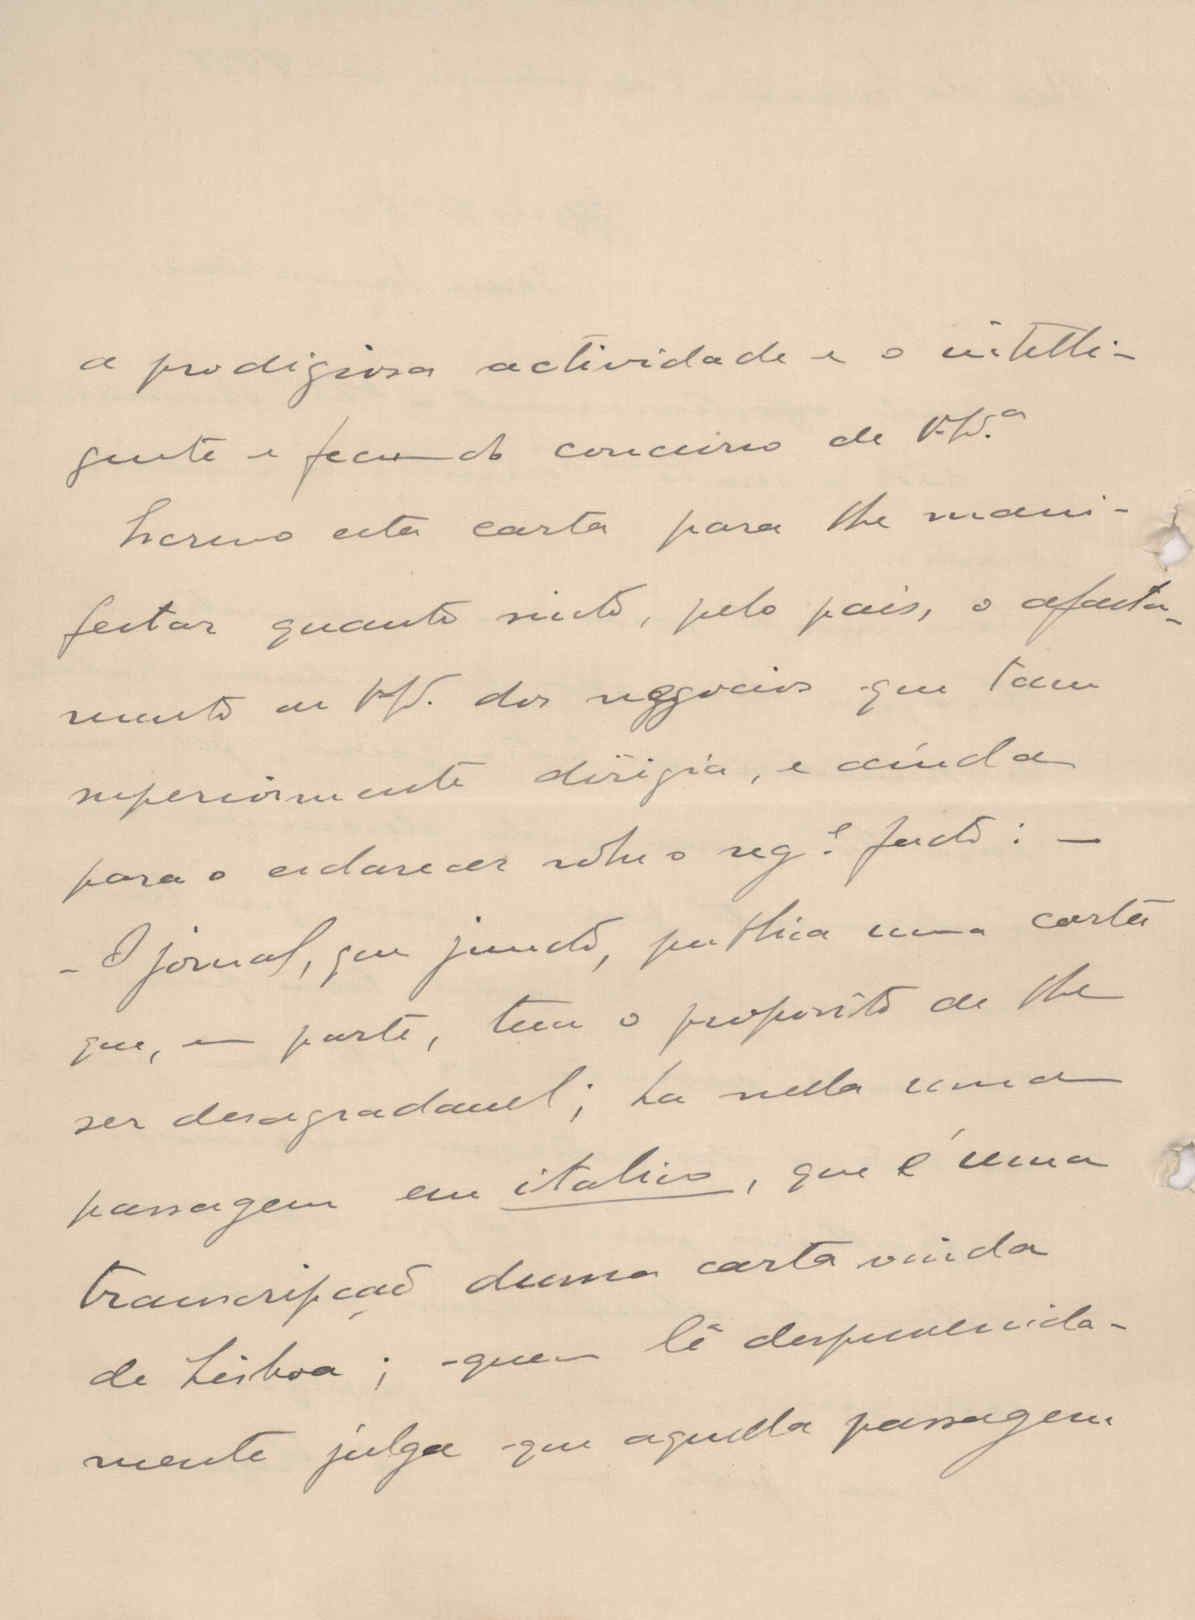 a prodigiosa actividade e o intelli-
gente e fecundo concurso de V.Ex.ª
Escrevo esta carta para lhe mani-
festar quanto sinto, pelo pais, o afasta-
mento de V.Ex. dos negocios que tam
superiormente dirigia, e ainda
para o esclarecer sobre o seg.e facto: —
- O jornal, que junto, publica uma carta
que, em parte, tem o proposito de lhe
ser desagradavel; ha nella uma
passagem em italico, que é uma
transcripção duma carta vinda
de Lisboa; quem lê desprevenida-
mente julga que aquella passagem